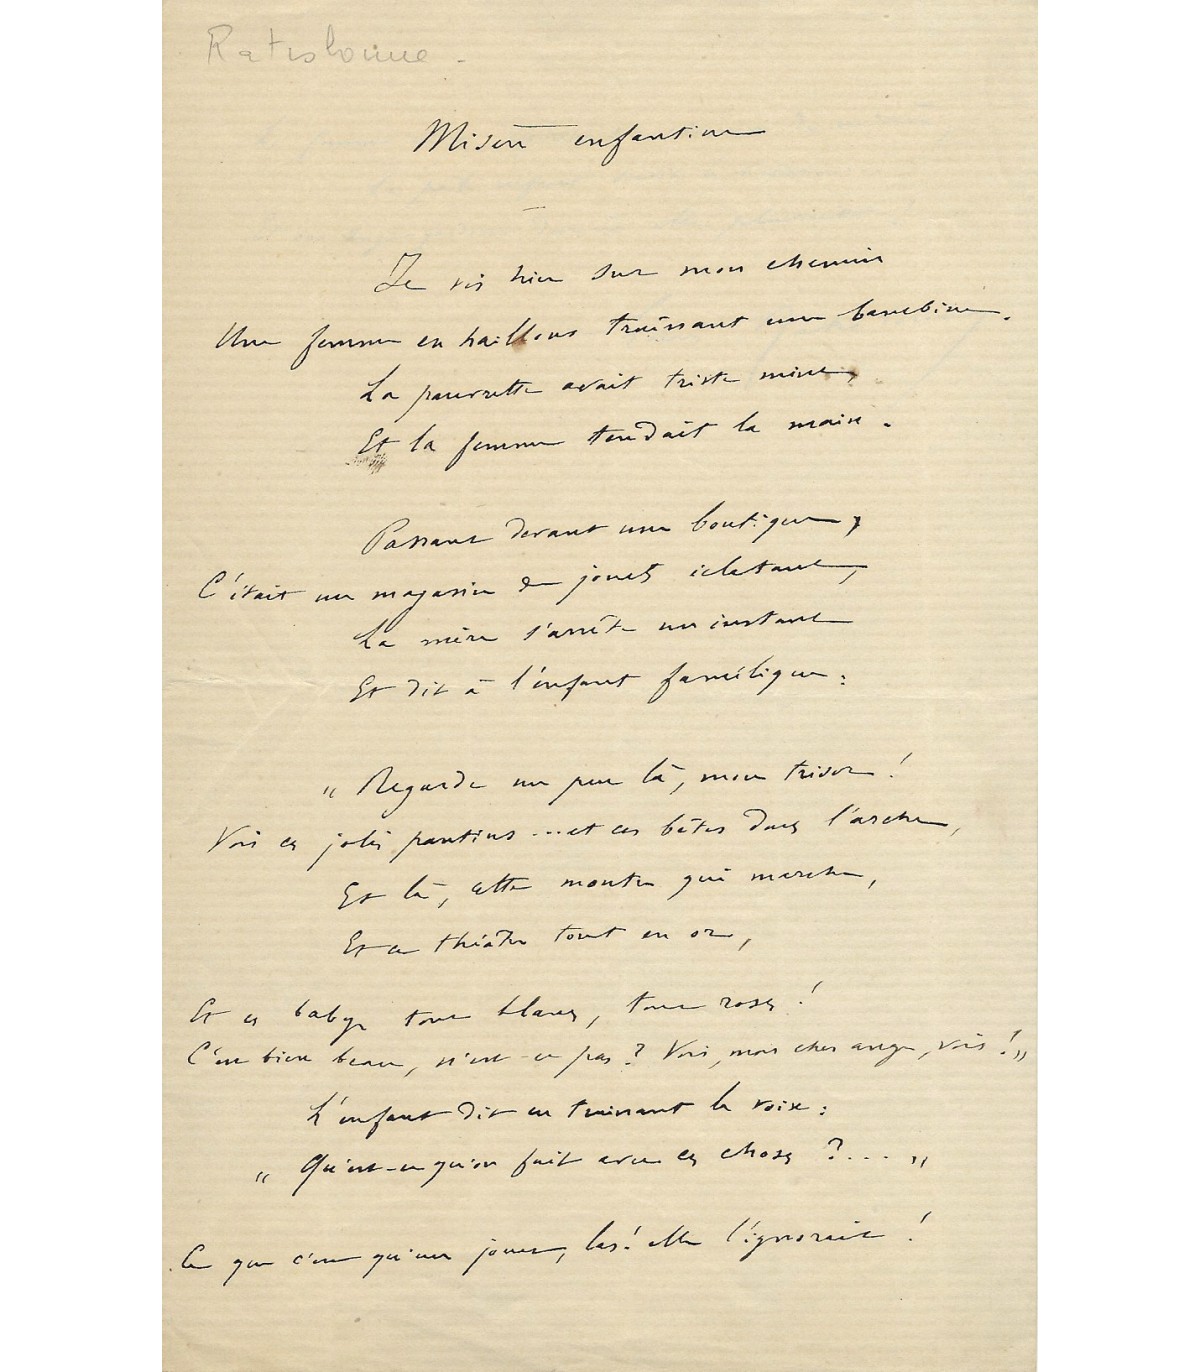 Ratisbonne -
Misère enfantine
Je vis hier sur mon chemin
Une femme en haillons traînant une bambine.
La pauvrette avait triste mine,
Et la femme tendait la main.
Passant devant une boutique,
C'était un magasin de jouets éclatant,
La mère s'arrête un instant
Et dit à l'enfant famélique:
„ Regarde un peu là, mon trésor!
Vois ces jolis pantins ... et ces bêtes dans l'arche,
Et là, cette montre qui marche,
Et ce théâtre tout en or,
Et ces babys tout blancs, tout roses!
C'est bien beau, n'est-ce pas? Vois, mon cher ange, vois! „
L'enfant dit en traînant la voix:
„ Qu'est-ce qu'on fait avec ces choses ?.... „
Ce que c'est qu'un jouet, las! elle l'ignorait!